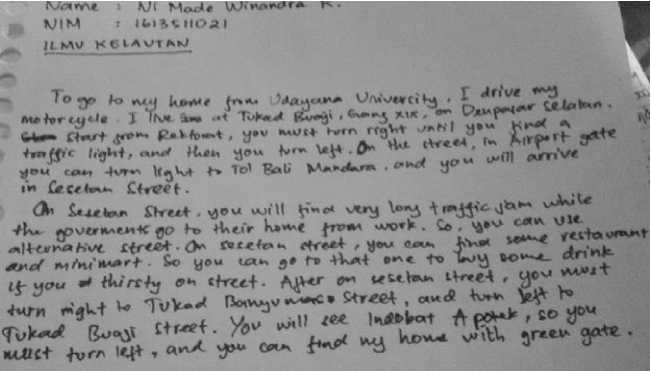 Name : Ni Made Winandra K.
NIM : 1613511021
ILMU KELAUTAN
To go to my home from Udayana University, I drive my
motorcycle. I live at Tukad Buaji, Gang XIX, on Denpasar Selatan.
Start from Rektorat, you must turn right until you find a
traffic light, and then you turn left. On the street, in Airport gate
you can turn light to Tol Bali Mandara, and you will arrive
in Sesetan Street.
On Sesetan Street, you will find very long traffic jam while
the goverments go to their home from work. So, you can use
alternative street. On sesetan street, you can find some restaurant
and minimart. So you can go to that one to buy some drink
if you thirsty on street. After on sesetan street, you must
turn right to Tukad Banyumas Street, and turn left to
Tukad Buaji street. You will see Indobat Apotek, so you
must turn left, and you can find my home with green gate.